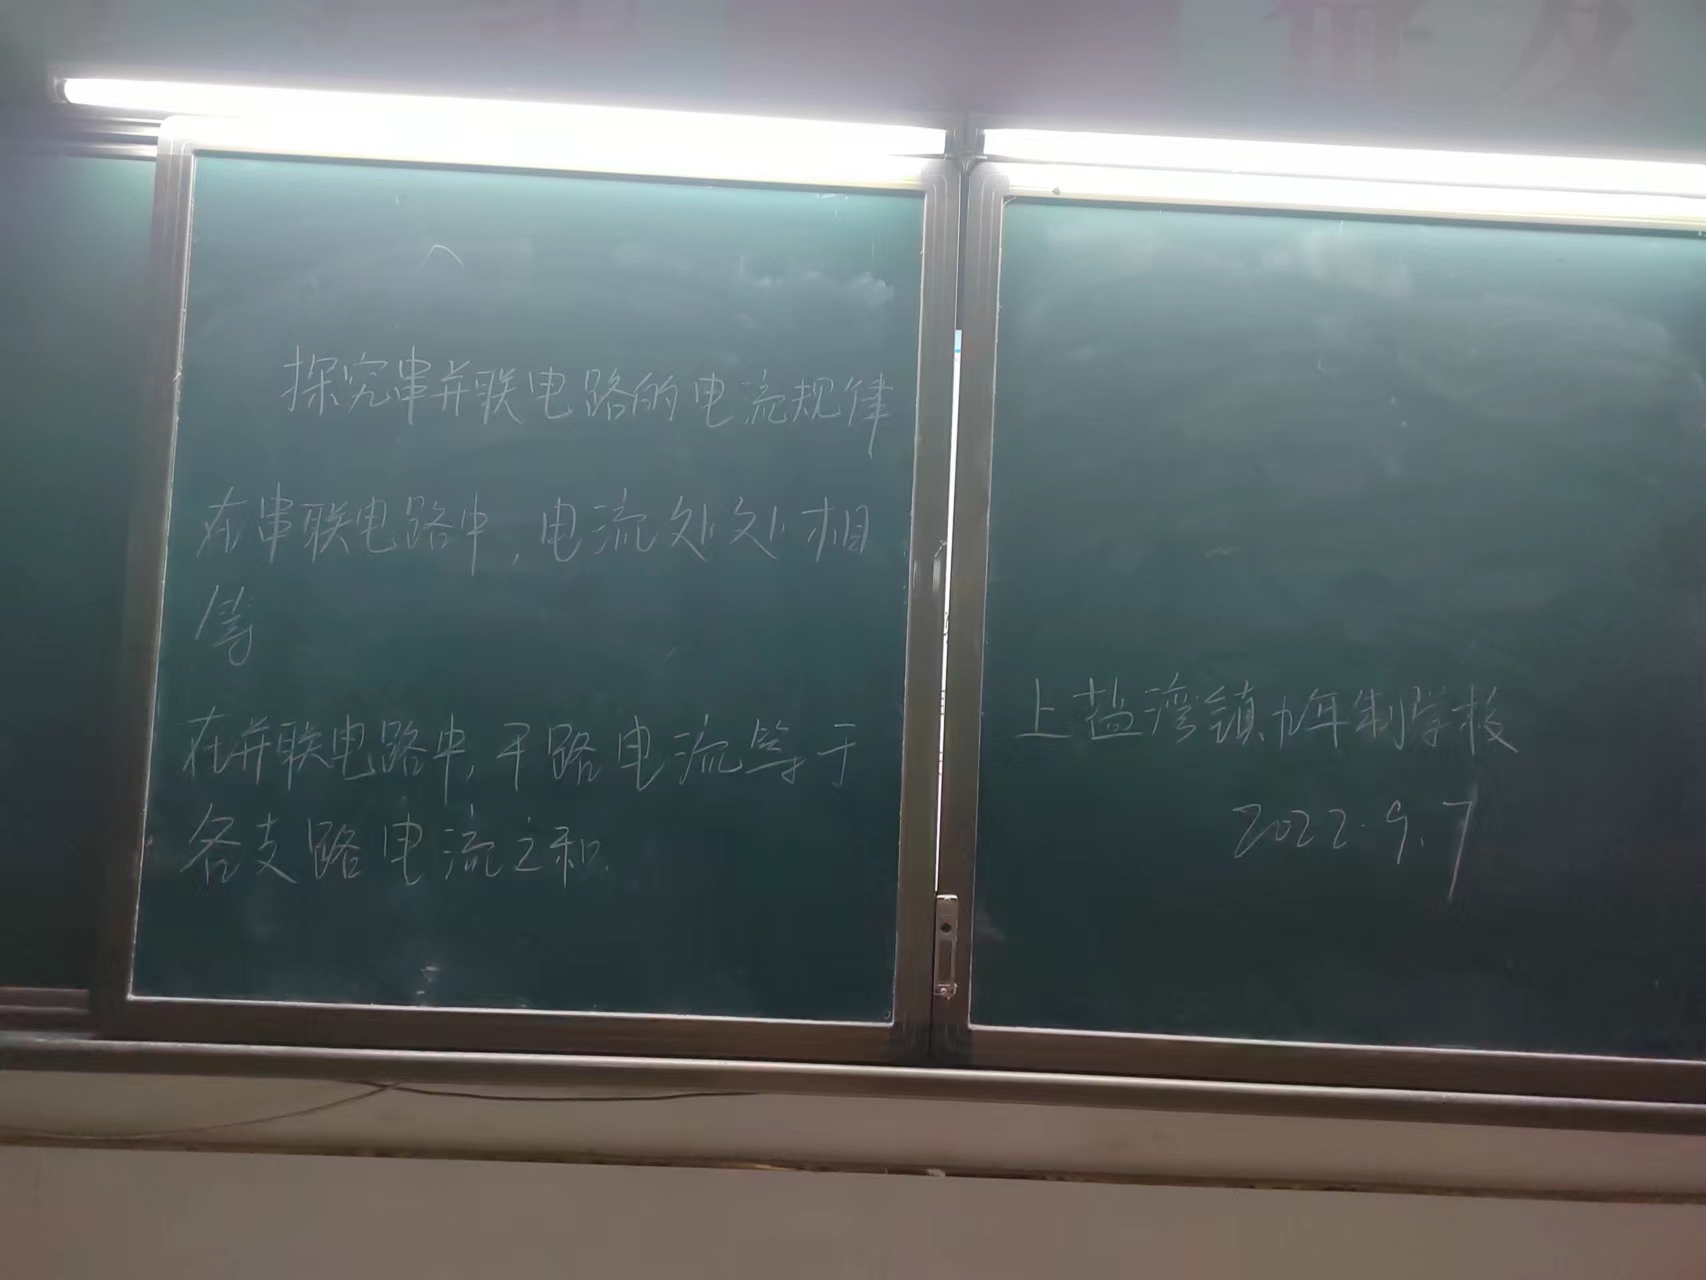 探究串并联电路的电流规律
在串联电路中,电流处处相
等
在并联电路中,干路电流等于
各支路电流之和.
上盐湾镇九年制学校
2022.9.7